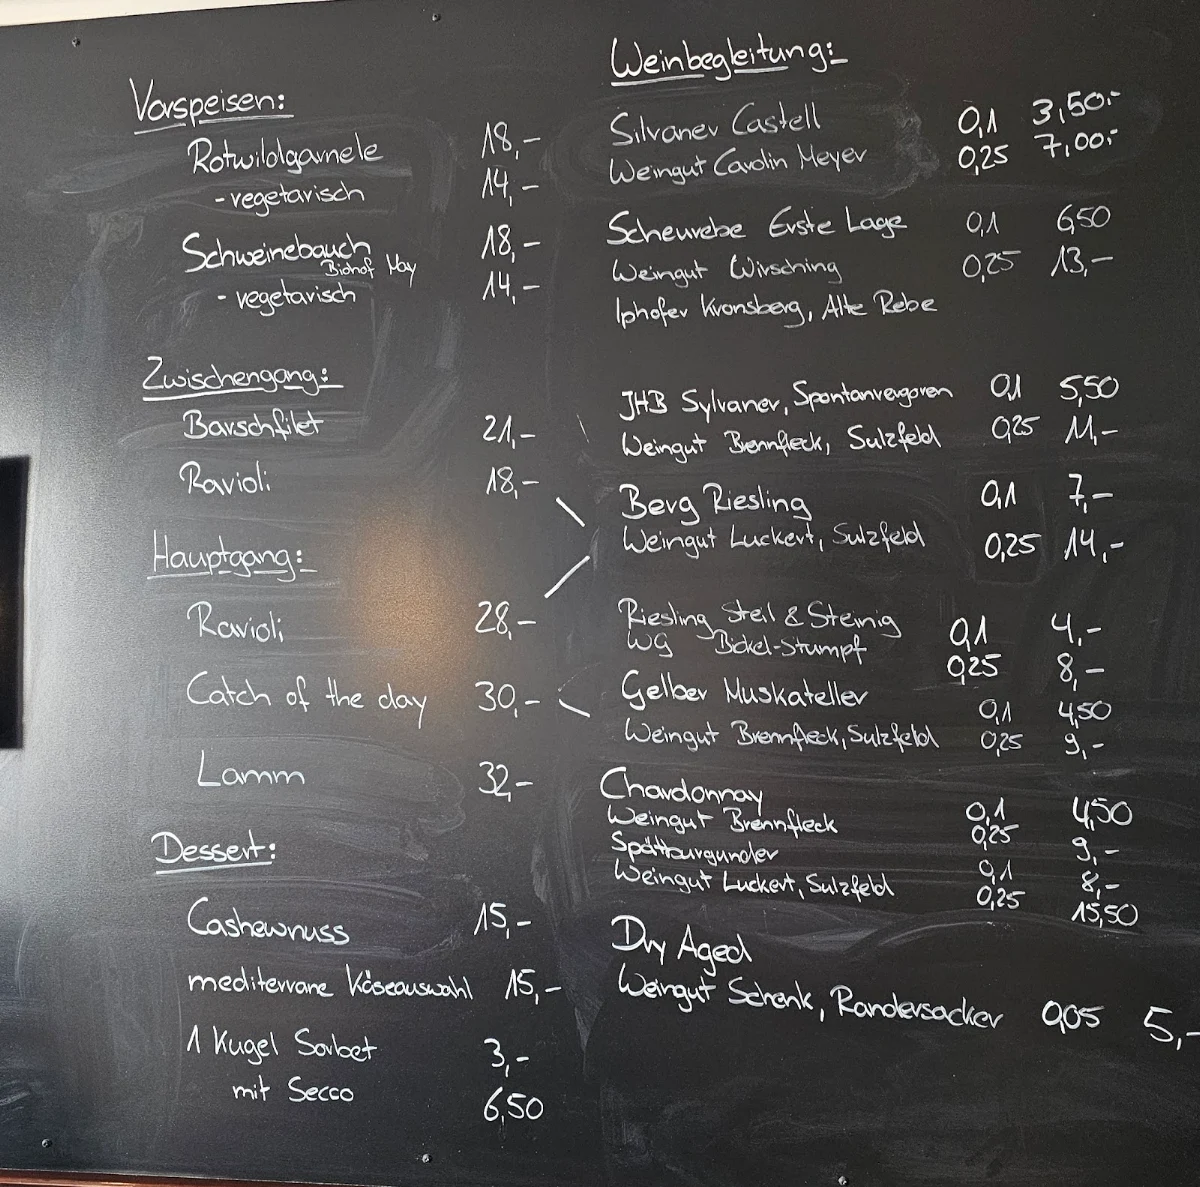 Vorspeisen:
Rotwildgarnele 18,-
- vegetarisch 14,-
Schweinebauch 18,-
Biohof May
- vegetarisch 14,-
Zwischengang:
Barschfilet 21,-
Ravioli 18,-
Hauptgang:
Ravioli 28,-
Catch of the day 30,-
Lamm 32,-
Dessert:
Cashewnuss 15,-
mediterrane Käseauswahl 15,-
1 Kugel Sorbet 3,-
mit Secco 6,50
Weinbegleitung:
Silvaner Castell 0,1 3,50.-
Weingut Carolin Meyer 0,25 7,00.-
Scheurebe Erste Lage 0,1 6,50
Weingut Wirsching 0,25 13,-
Iphofer Kronsberg, Alte Rebe
JHB Sylvaner, Spontanvergoren 0,1 5,50
Weingut Brennfleck, Sulzfeld 0,25 11,-
Berg Riesling 0,1 7,-
Weingut Luckert, Sulzfeld 0,25 14,-
Riesling Steil & Steinig 0,1 4,-
WG Bickel-Stumpf 0,25 8,-
Gelber Muskateller 0,1 4,50
Weingut Brennfleck, Sulzfeld 0,25 9,-
Chardonnay 0,1 4,50
Weingut Brennfleck 0,25 9,-
Spätburgunder 0,1 8,-
Weingut Luckert, Sulzfeld 0,25 15,50
Dry Aged
Weingut Schenk, Randersacker 0,05 5,-